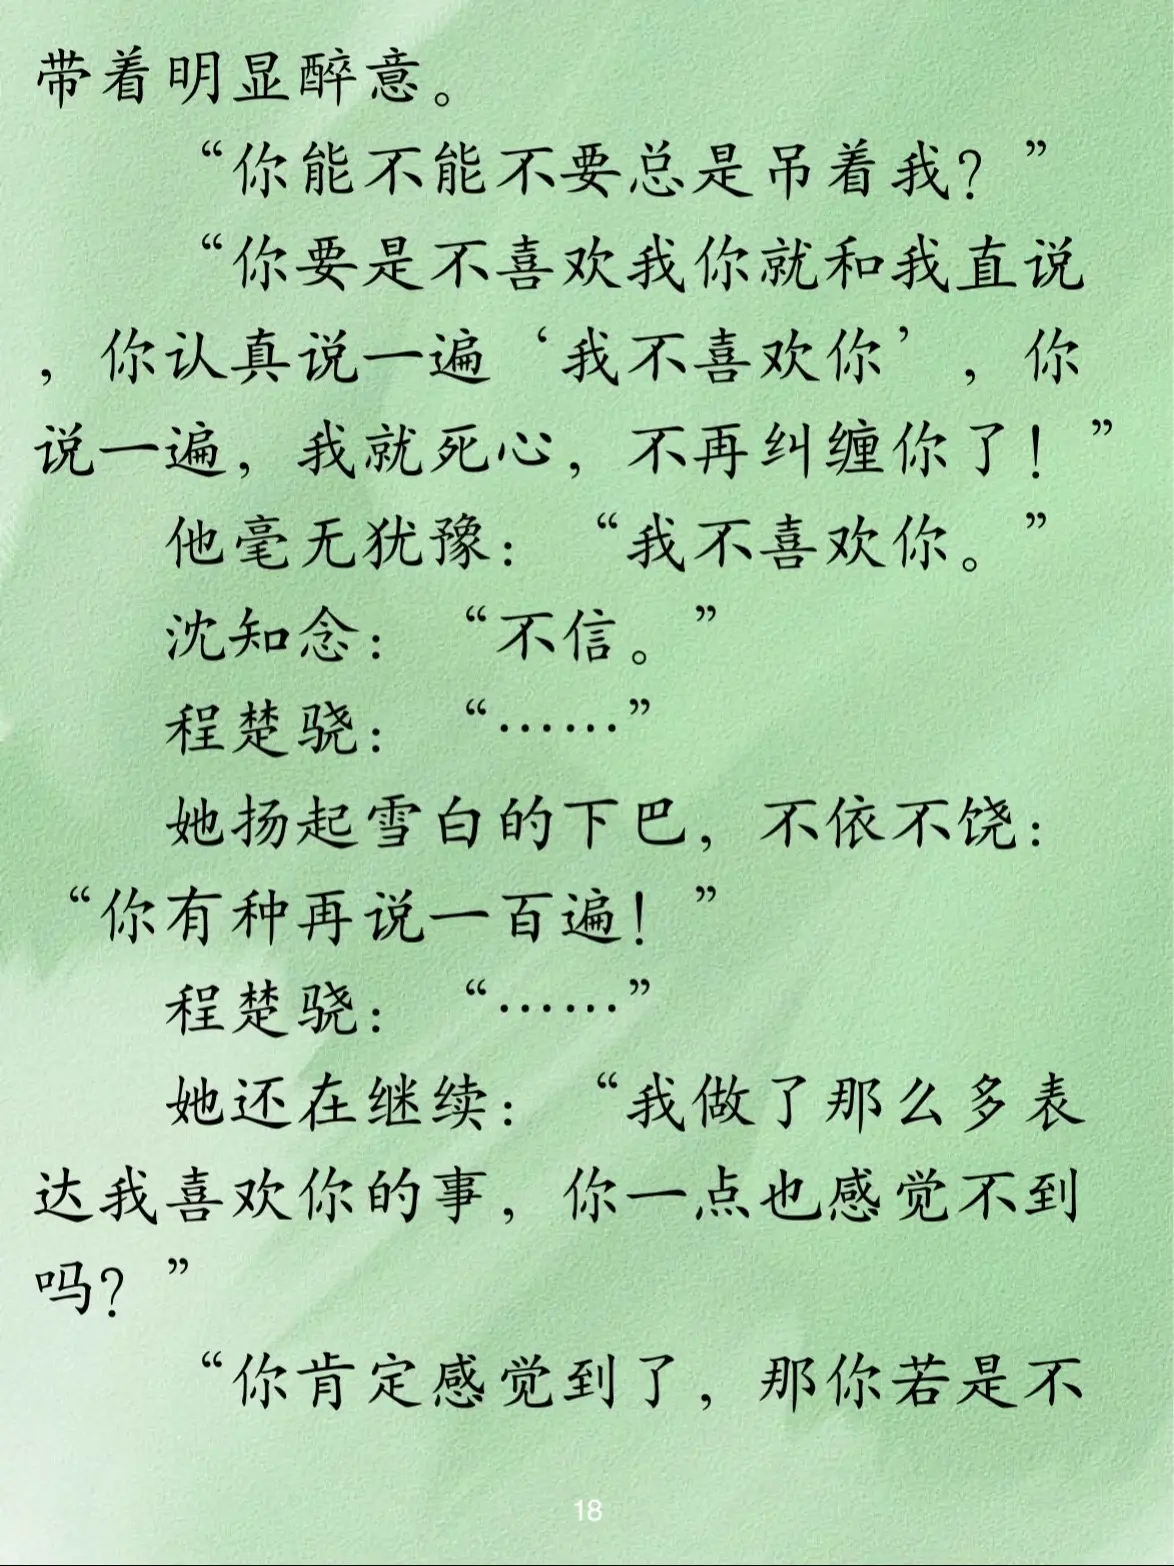 带着明显醉意。
“你能不能不要总是吊着我？”
“你要是不喜欢我你就和我直说
，你认真说一遍‘我不喜欢你’，你
说一遍，我就死心，不再纠缠你了！”
他毫无犹豫：“我不喜欢你。”
沈知念：“不信。”
程楚骁：“……”
她扬起雪白的下巴，不依不饶：
“你有种再说一百遍！”
程楚骁：“……”
她还在继续：“我做了那么多表
达我喜欢你的事，你一点也感觉不到
吗？”
“你肯定感觉到了，那你若是不
18